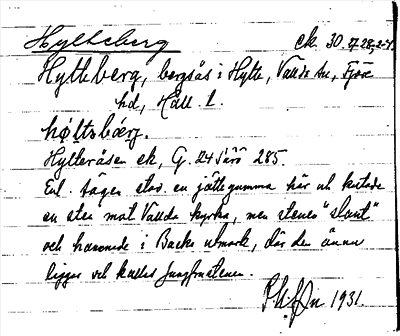 Hylteberg ek. 30
Hylteberg, bergsås i Hylte, Vallda sn, Fjäre
hd, Hall. l.
Hylteråsen ek, G. Särö 285.
Enl. sägen stod en jättegumma här och kastade
en sten mot Vallda kyrka, men stenen "slant"
och hamnade i Backa utmark, där den ännu
ligger och kallas Jungfrustenen.
1931.